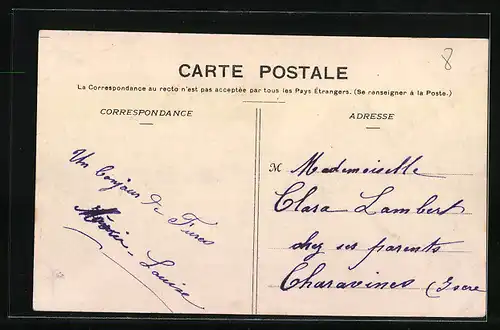 8
CARTE POSTALE
La Correspondance au recto n'est pas acceptée par tous les Pays Étrangers. (Se renseigner à la Poste.)
CORRESPONDANCE
Un bonjour de Fures
Louise
ADRESSE
M Mademoiselle
Clara Lambert
chez ses parents
Charavines (Isère